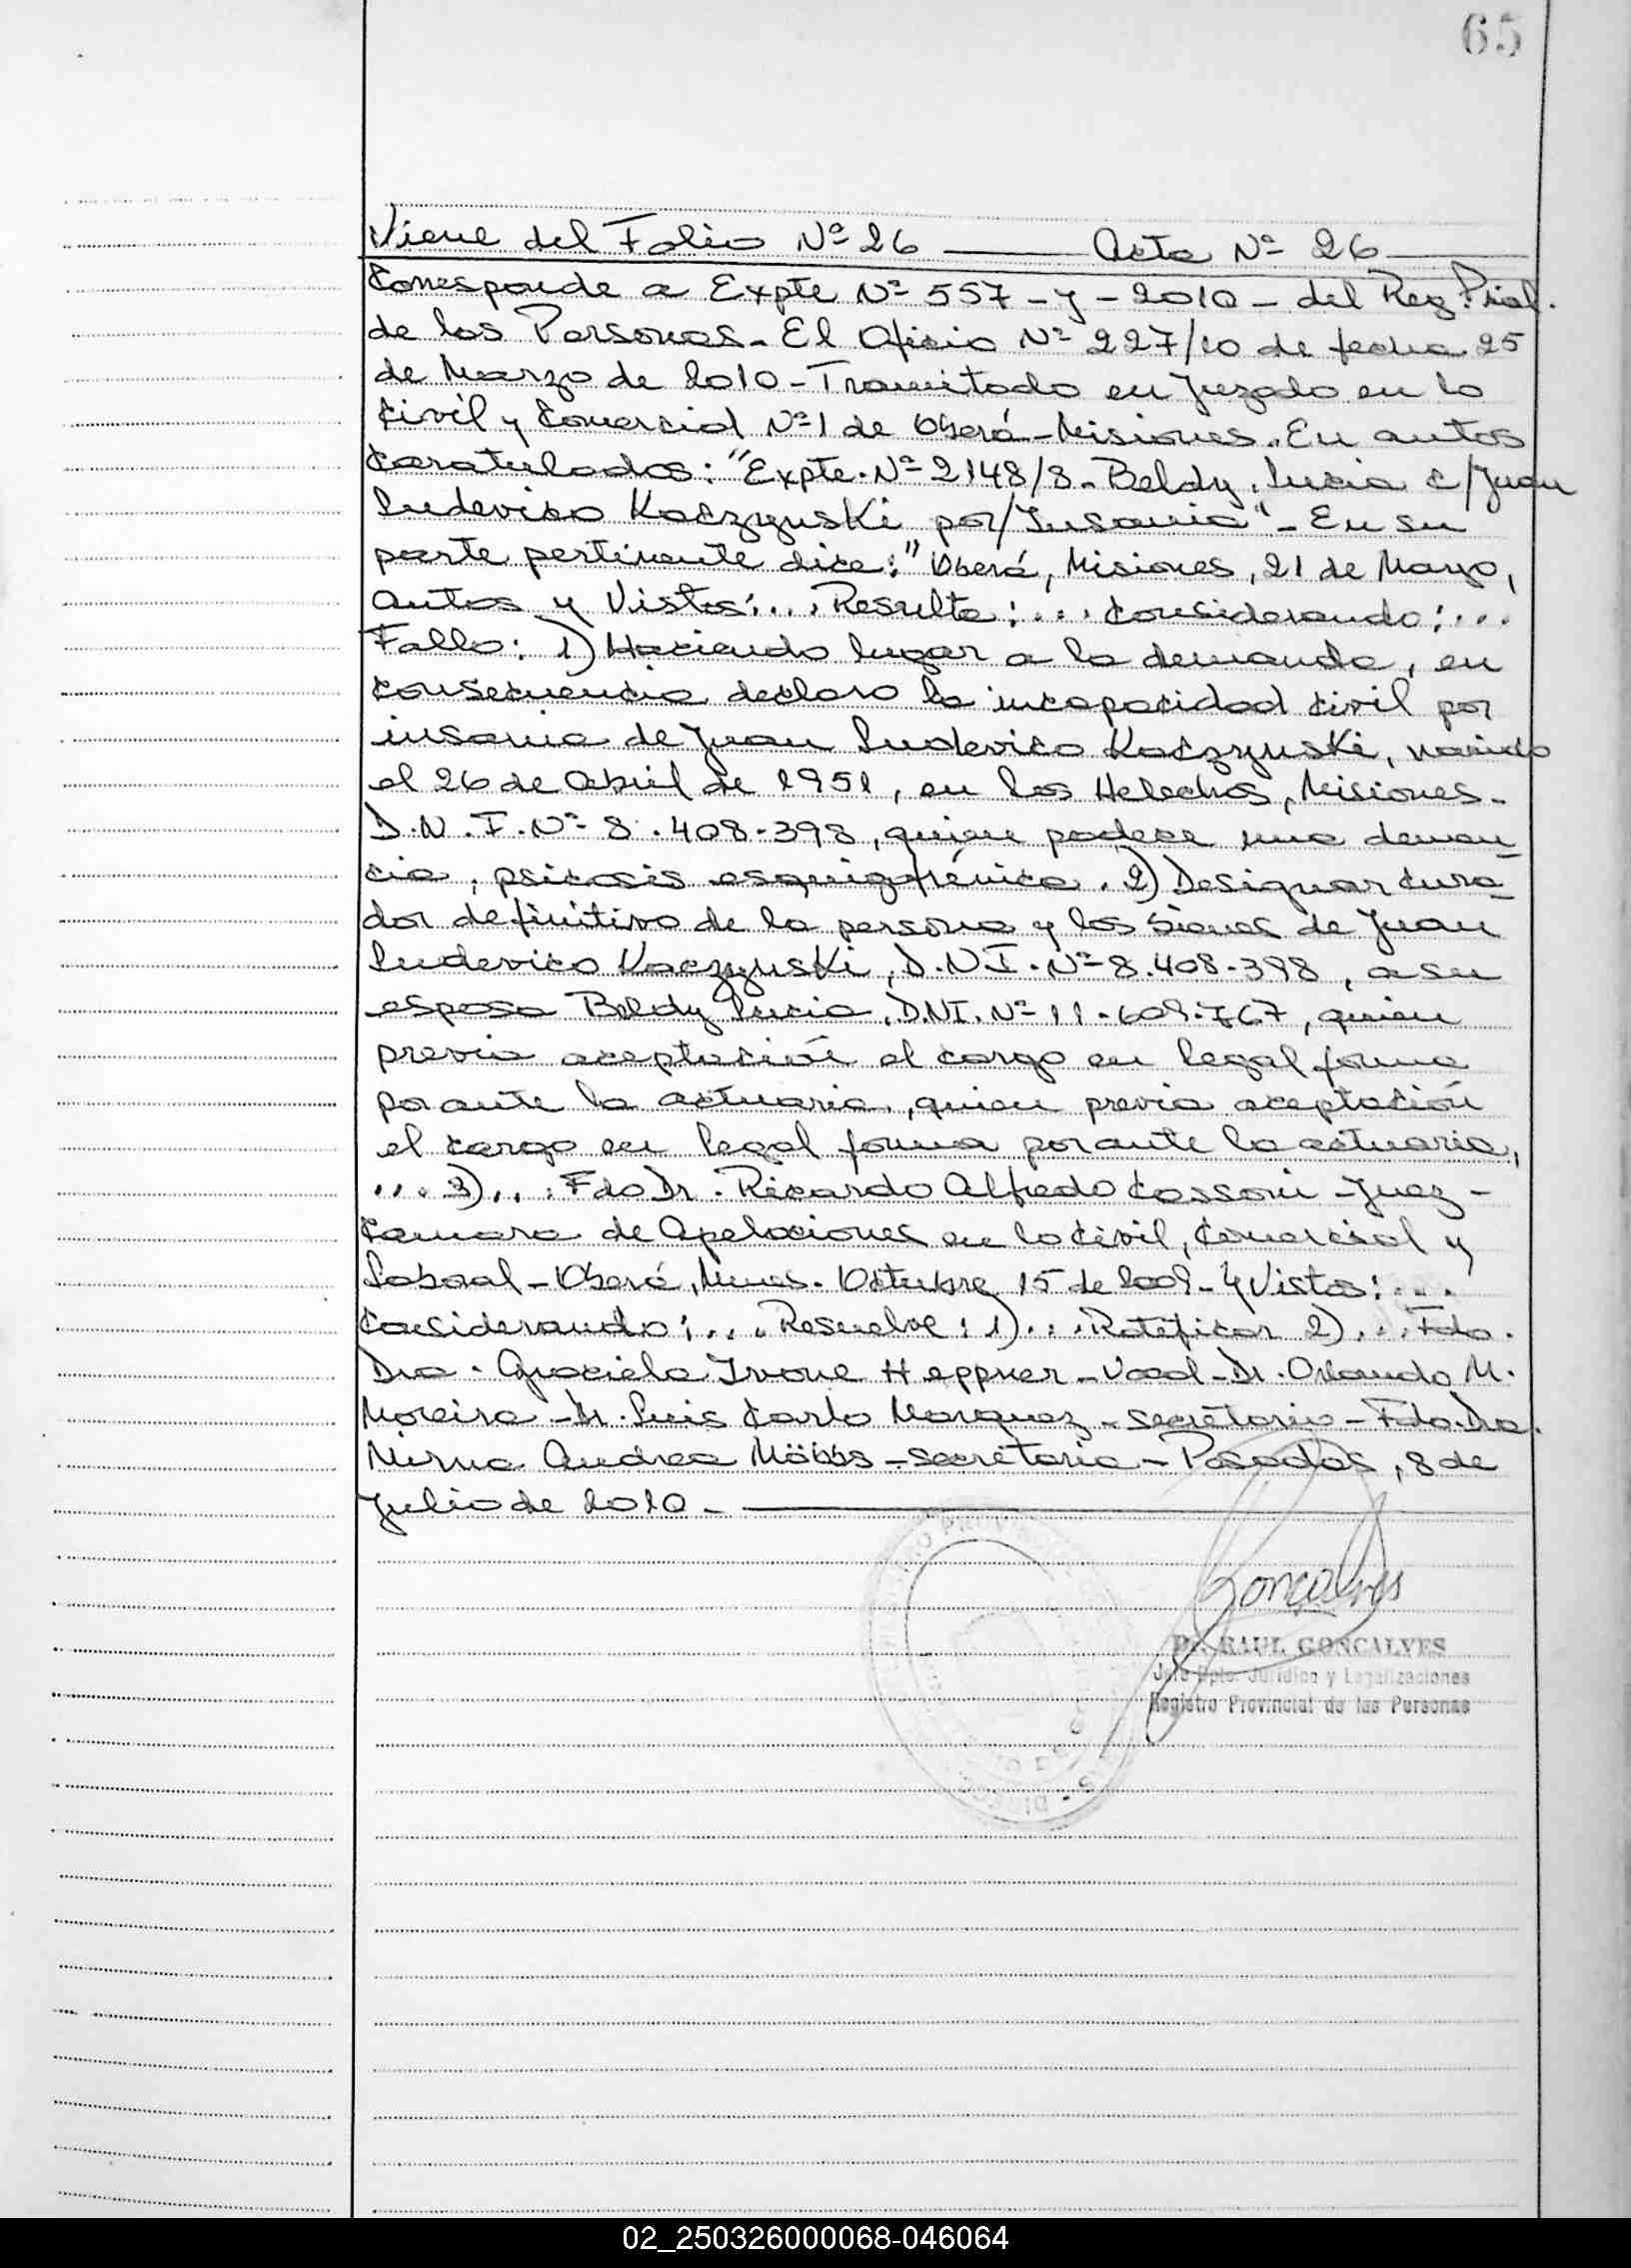 65
Viene del Folio Nº 26 ——— Acta Nº 26
Corresponde a Expte Nº 557 - y - 2010 - del Reg. Prial.
de las Personas. El Oficio Nº 227/10 de fecha 25
de Marzo de 2010 - Tramitado en Juzgado en lo
Civil y Comercial Nº 1 de Oberá - Misiones. En autos
Caratulados: "Expte. Nº 2148/8 - Beldy, Lucia c/Juan
Ludovico Koczyuski por/Insania" - En su
parte pertinente dice: "Oberá, Misiones, 21 de Mayo,
Autos y Vistos: ... Resulta: ... Considerando: ...
Fallo: 1) Haciendo lugar a la demanda, en
consecuencia declaro la incapacidad civil por
insania de Juan Ludovico Koczyuski, nacido
el 26 de Abril de 1951, en los Helechos, Misiones -
D.N.I. Nº 8.408.398, quien padece una demen-
cia, psicosis esquizofrénica. 2) Designar Cura-
dor definitivo de la persona y los bienes de Juan
Ludovico Koczyuski, D.N.I. Nº 8.408.398, a su
esposa Beldy Lucia, D.NI. Nº 11.609.767, quien
previa aceptación el cargo en legal forma
por ante la actuaria, quien previa aceptación
el cargo en legal forma por ante la actuaria,
... 3) ... Fdo Dr. Ricardo Alfredo Cassoni - Juez -
Camara de Apelaciones en lo Civil, Comercial y
Laboral - Oberá, Mnes. Octubre 15 de 2009 - Y Vistos: ...
Considerando: ... Resuelve: 1) ... Ratificar 2) ... Fdo.
Dra. Graciela Ivone Heppner - Vocal - Dr. Orlando M.
Moreira - Dr. Luis Carlo Marquez - secretario - Fdo. Dra.
Mirna Andrea Möbbs - secretaria - Posadas, 8 de
Julio de 2010 -
Goncalves
Dr. RAUL GONCALVES
Jefe Dpto. Jurídico y Legalizaciones
Registro Provincial de las Personas
02_250326000068-046064